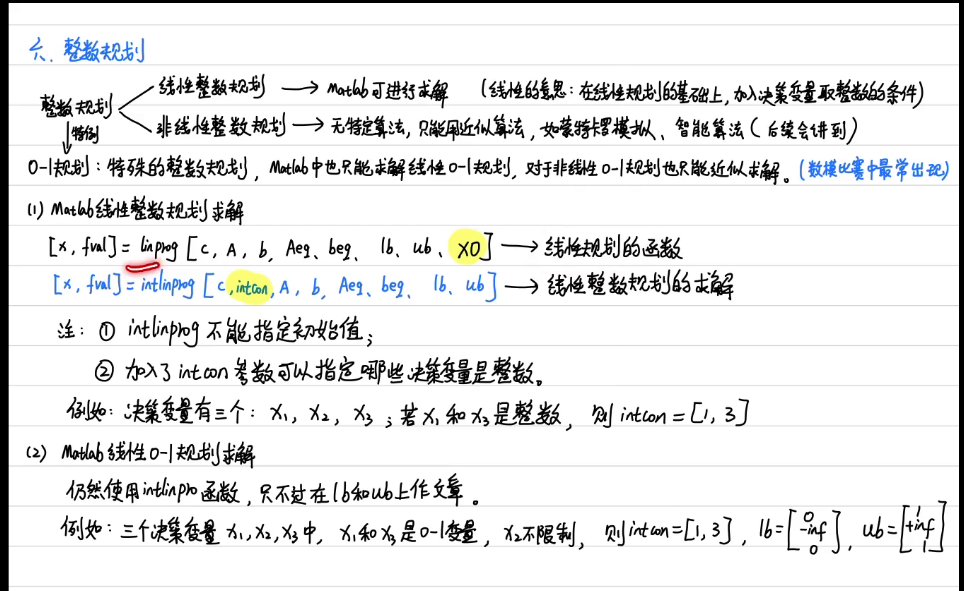 六、整数规划
整数规划
线性整数规划 → Matlab可进行求解 (线性的意思：在线性规划的基础上，加入决策变量取整数的条件)
非线性整数规划 → 无特定算法，只能用近似算法，如蒙特卡罗模拟、智能算法（后续会讲到）
特例
0-1规划：特殊的整数规划，Matlab中也只能求解线性0-1规划，对于非线性0-1规划也只能近似求解。(数模比赛中最常出现)
(1) Matlab线性整数规划求解
[x, fval] = linprog [c, A, b, Aeq、beq、lb、ub、X0] → 线性规划的函数
[x, fval] = intlinprog [c, intcon, A, b, Aeq、beq、lb、ub] → 线性整数规划的求解
注：① intlinprog 不能指定初始值；
② 加入了intcon参数可以指定哪些决策变量是整数。
例如：决策变量有三个：x₁，x₂，x₃；若x₁和x₃是整数，则intcon=[1, 3]
(2) Matlab线性0-1规划求解
仍然使用intlinpro函数，只不过在lb和ub上作文章。
例如：三个决策变量x₁,x₂,x₃中，x₁和x₃是0-1变量，x₂不限制，则intcon=[1, 3]，lb=[0 -inf 0]，ub=[1 +inf 1]